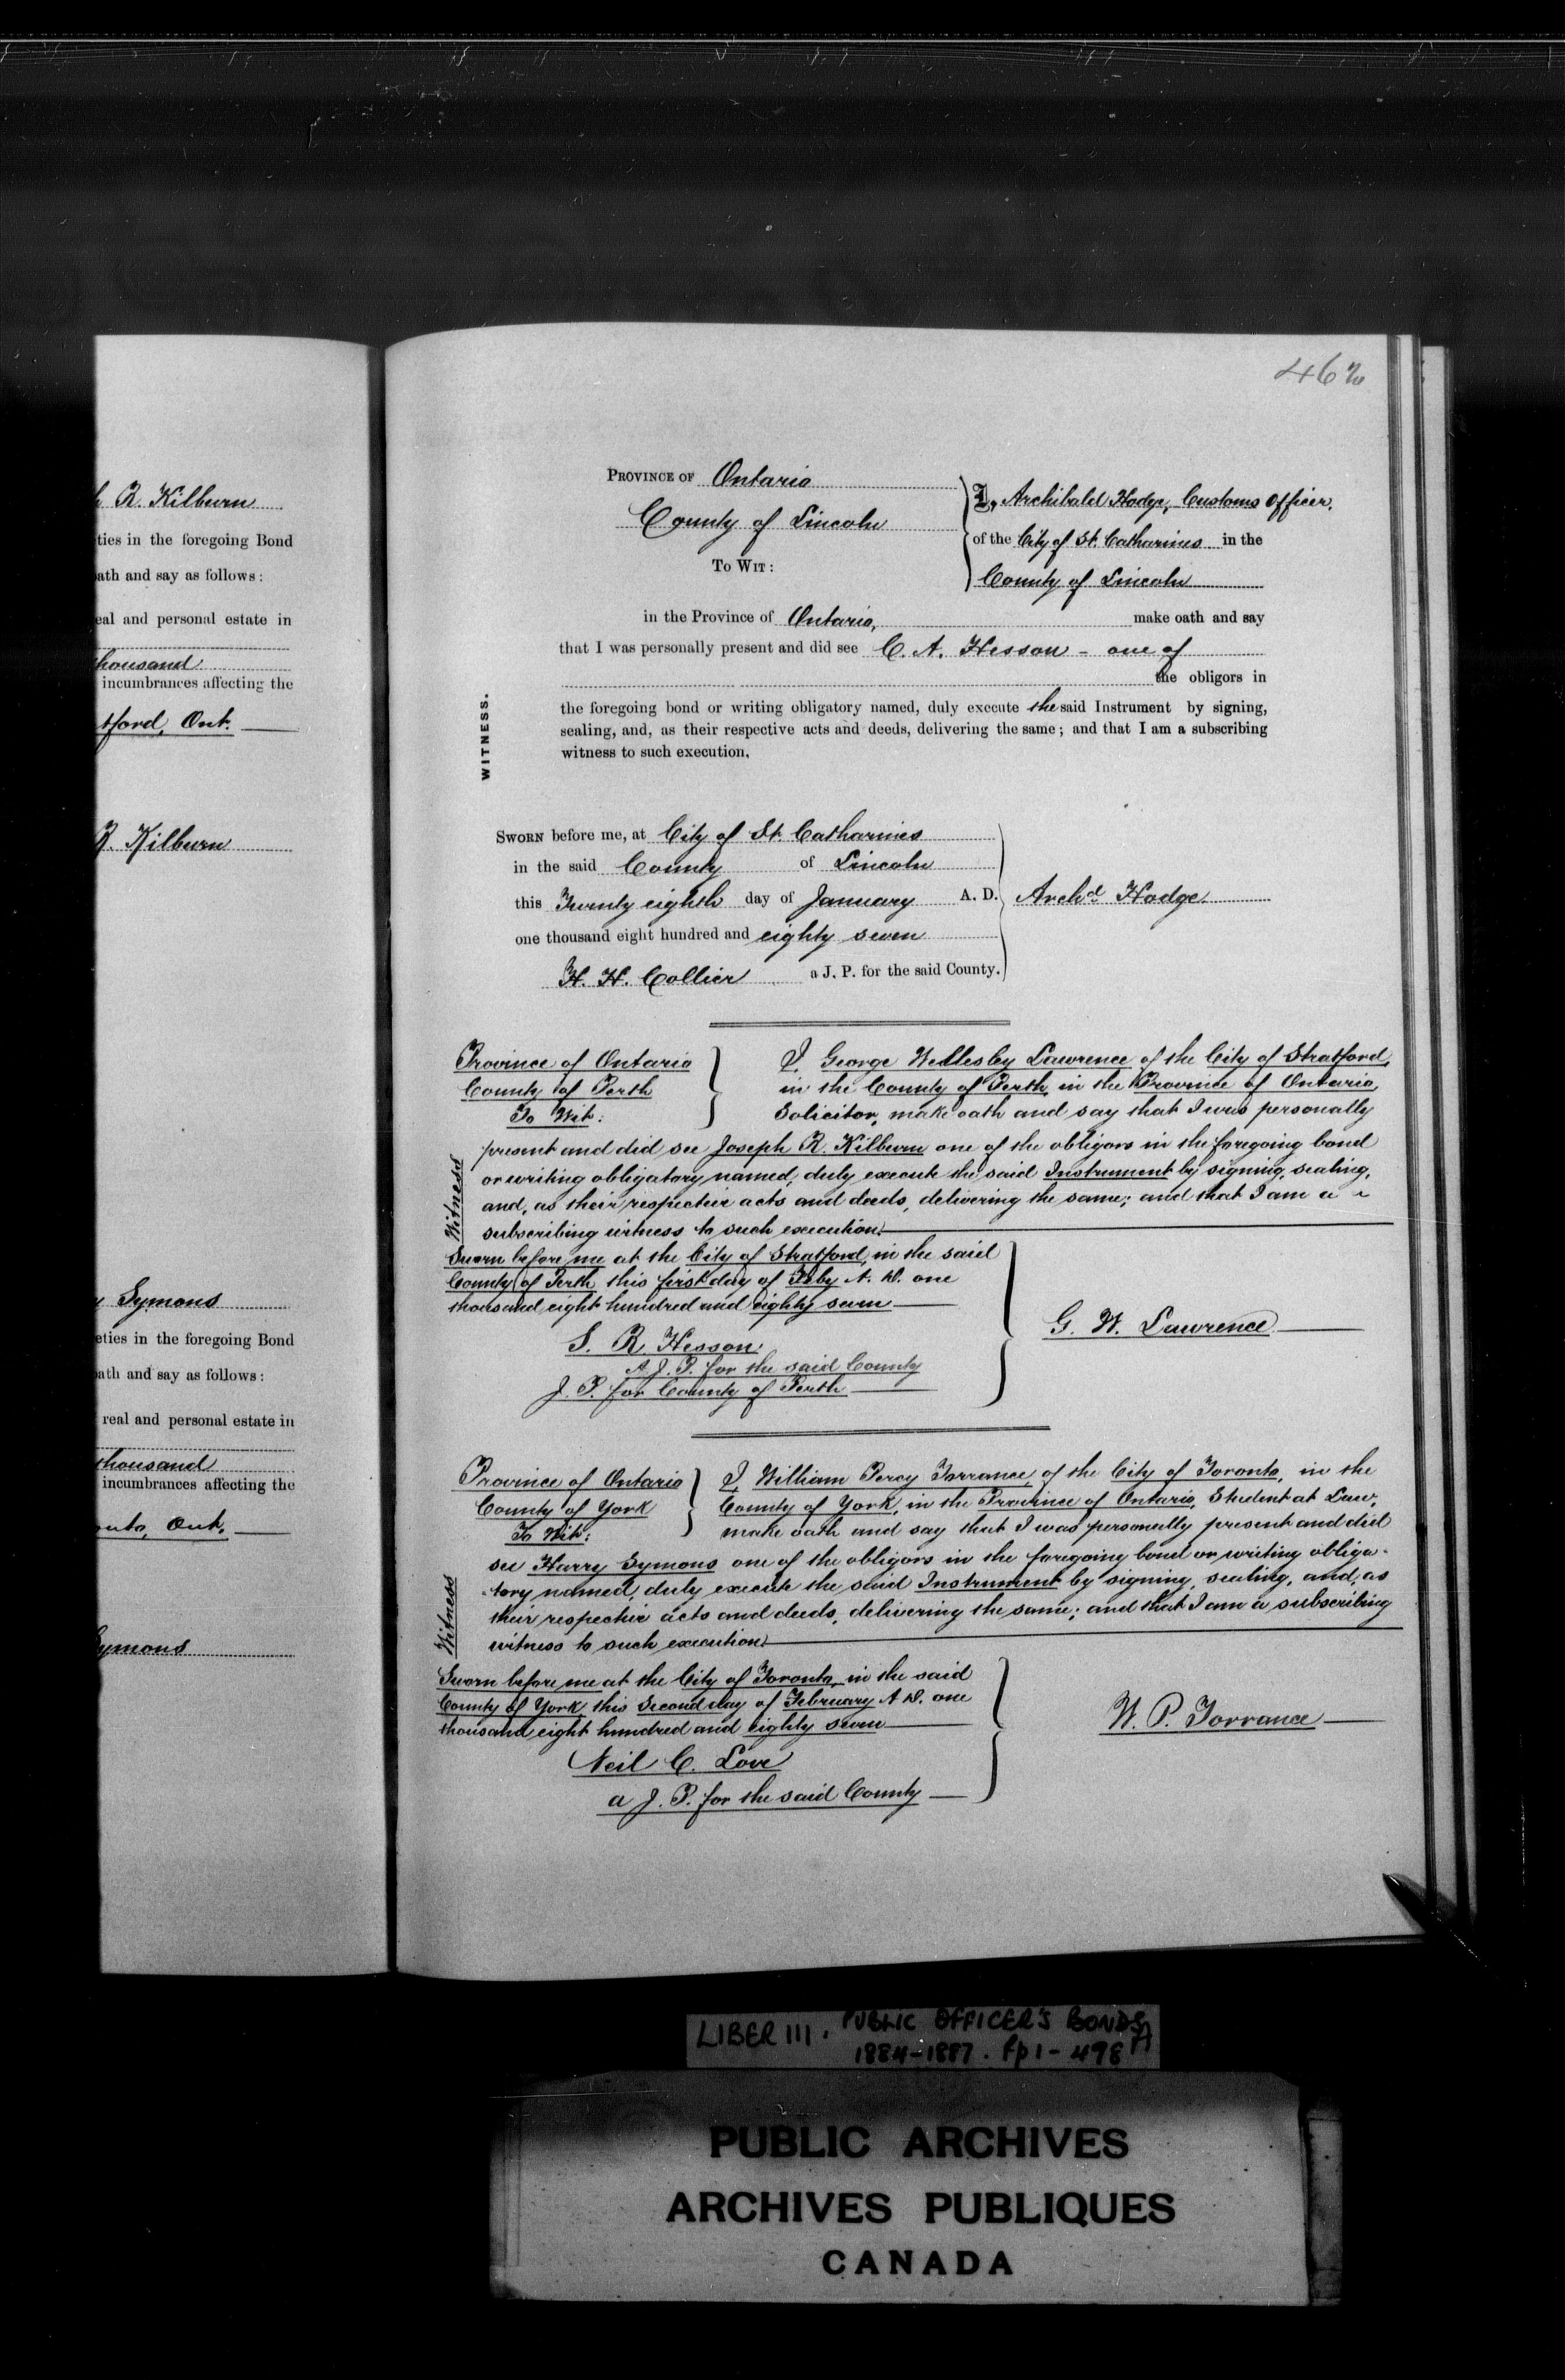 h R. Kilburn
ties in the foregoing Bond
ath and say as follows:
eal and personal estate in
thousand
incumbrances affecting the
tford, Ont.
R. Kilburn
y Symons
eties in the foregoing Bond
ath and say as follows:
real and personal estate in
thousand
incumbrances affecting the
onto, Ont.
Symons
462
PROVINCE OF Ontario
County of Lincoln
TO WIT:
I, Archibald Hodge, Customs Officer,
of the City of St. Catharines in the
County of Lincoln
in the Province of Ontario, make oath and say
that I was personally present and did see C. A. Hesson - one of
the obligors in
WITNESS.
the foregoing bond or writing obligatory named, duly execute the said Instrument by signing,
sealing, and, as their respective acts and deeds, delivering the same; and that I am a subscribing
witness to such execution.
SWORN before me, at City of St. Catharines
in the said County of Lincoln
this Twenty eighth day of January A. D.
one thousand eight hundred and eighty seven
H. H. Collier a J. P. for the said County.
Archd Hodge
Province of Ontario
County of Perth
To Wit:
I, George Wellesley Lawrence of the City of Stratford,
in the County of Perth, in the Province of Ontario,
Solicitor, make oath and say that I was personally
Witness
present and did see Joseph R. Kilburn one of the obligors in the foregoing bond
or writing obligatory named, duly execute the said Instrument by signing, sealing,
and, as their respective acts and deeds, delivering the same; and that I am a
subscribing witness to such execution.
Sworn before me at the City of Stratford, in the said
County of Perth this first day of Feby A. D. one
thousand eight hundred and eighty seven
S. R. Hesson
A J. P. for the said County
J. P. for County of Perth
G. W. Lawrence
Province of Ontario
County of York
To Wit:
I, William Percy Torrance, of the City of Toronto, in the
County of York, in the Province of Ontario, Student at Law,
make oath and say that I was personally present and did
Witness
see Harry Symons one of the obligors in the foregoing bond or writing obliga-
-tory named, duly execute the said Instrument by signing, sealing, and, as
their respective acts and deeds, delivering the same; and that I am a subscribing
witness to such execution.
Sworn before me at the City of Toronto, in the said
County of York, this Second day of February A D. one
thousand eight hundred and eighty seven
Neil C. Love
a J. P. for the said County
W. P. Torrance
LIBER III. PUBLIC OFFICER'S BONDS
1884-1887. fp 1-498A
PUBLIC ARCHIVES
ARCHIVES PUBLIQUES
CANADA